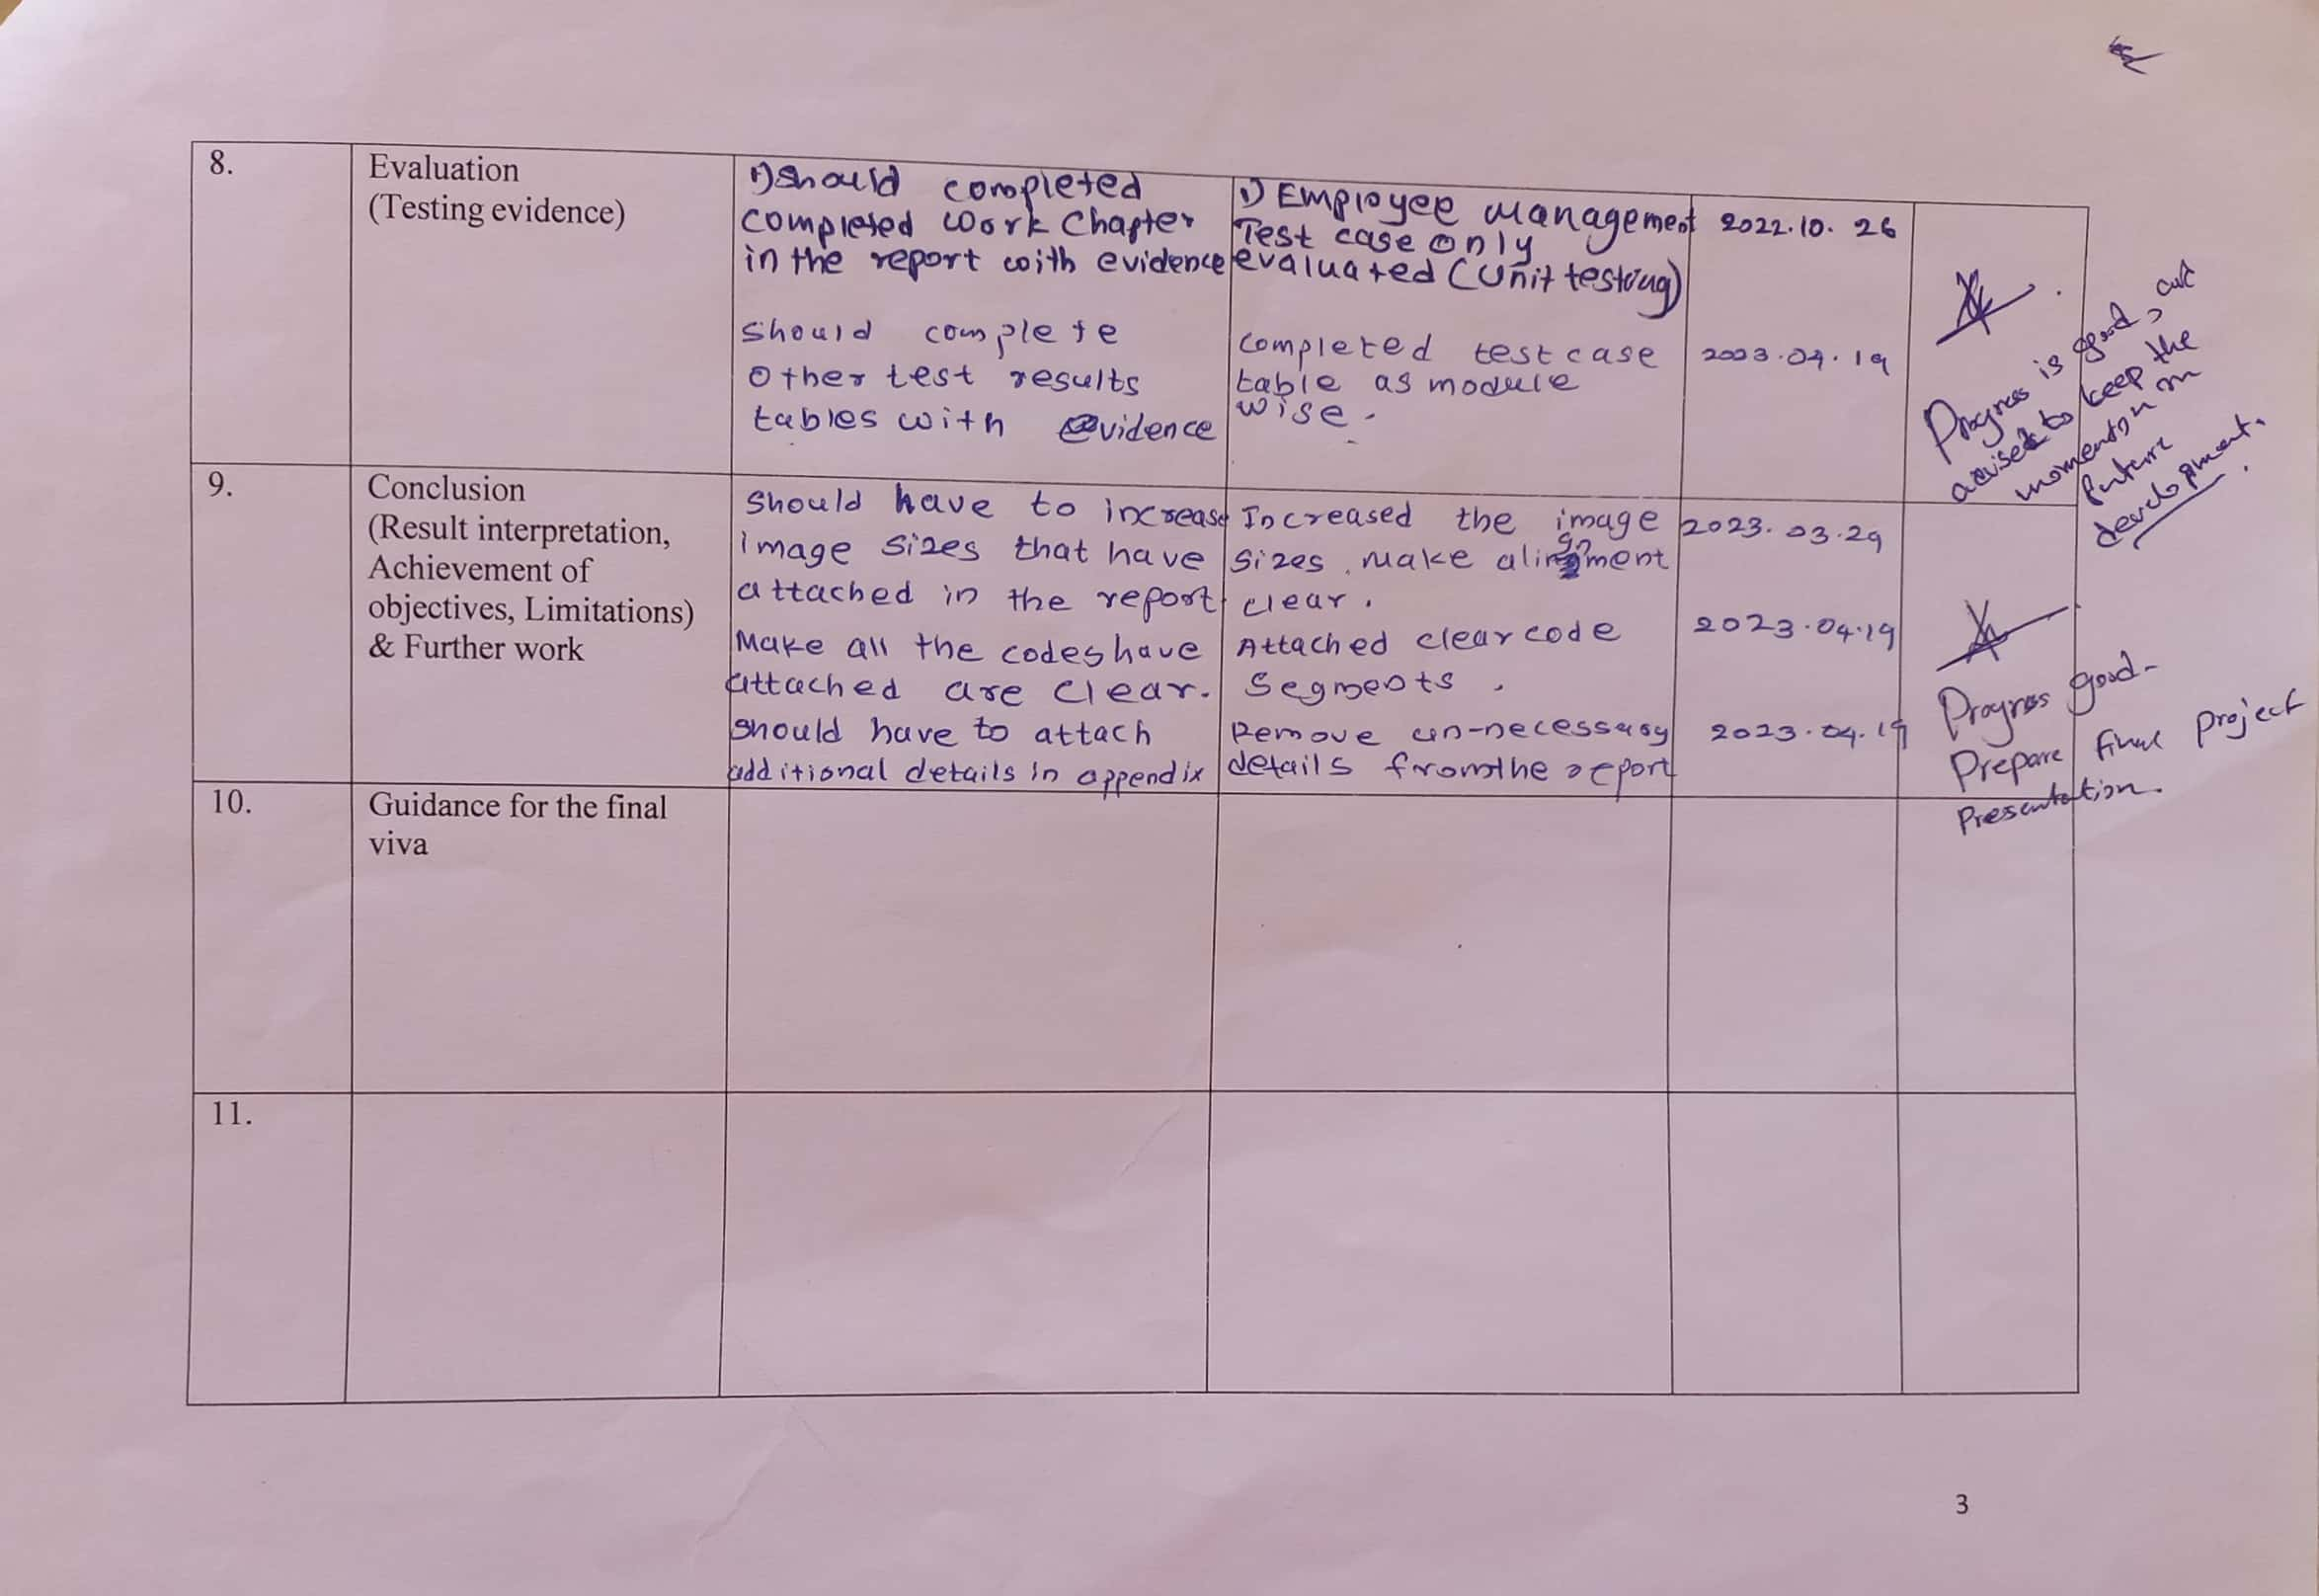 8.
Evaluation
(Testing evidence)
1) Should completed
completed work Chapter
in the report with evidence
Should complete
Other test results
tables with evidence
1) Employee Management
Test case only
evaluated (Unit testing)
completed test case
table as module
wise.
2022.10.26
2023.04.19
Progress is good, and
advised to keep the
momentum on
future
development.
9.
Conclusion
(Result interpretation,
Achievement of
objectives, Limitations)
& Further work
Should have to increase
image sizes that have
attached in the report
Make all the codes have
attached are clear.
Should have to attach
additional details in appendix
Increased the image
sizes. Make alingment
clear.
Attached clear code
Segments.
Remove un-necessary
details from the report
2023.03.29
2023.04.19
2023.04.19
Progress good-
Prepare final project
Presentation.
10.
Guidance for the final
viva
11.
3